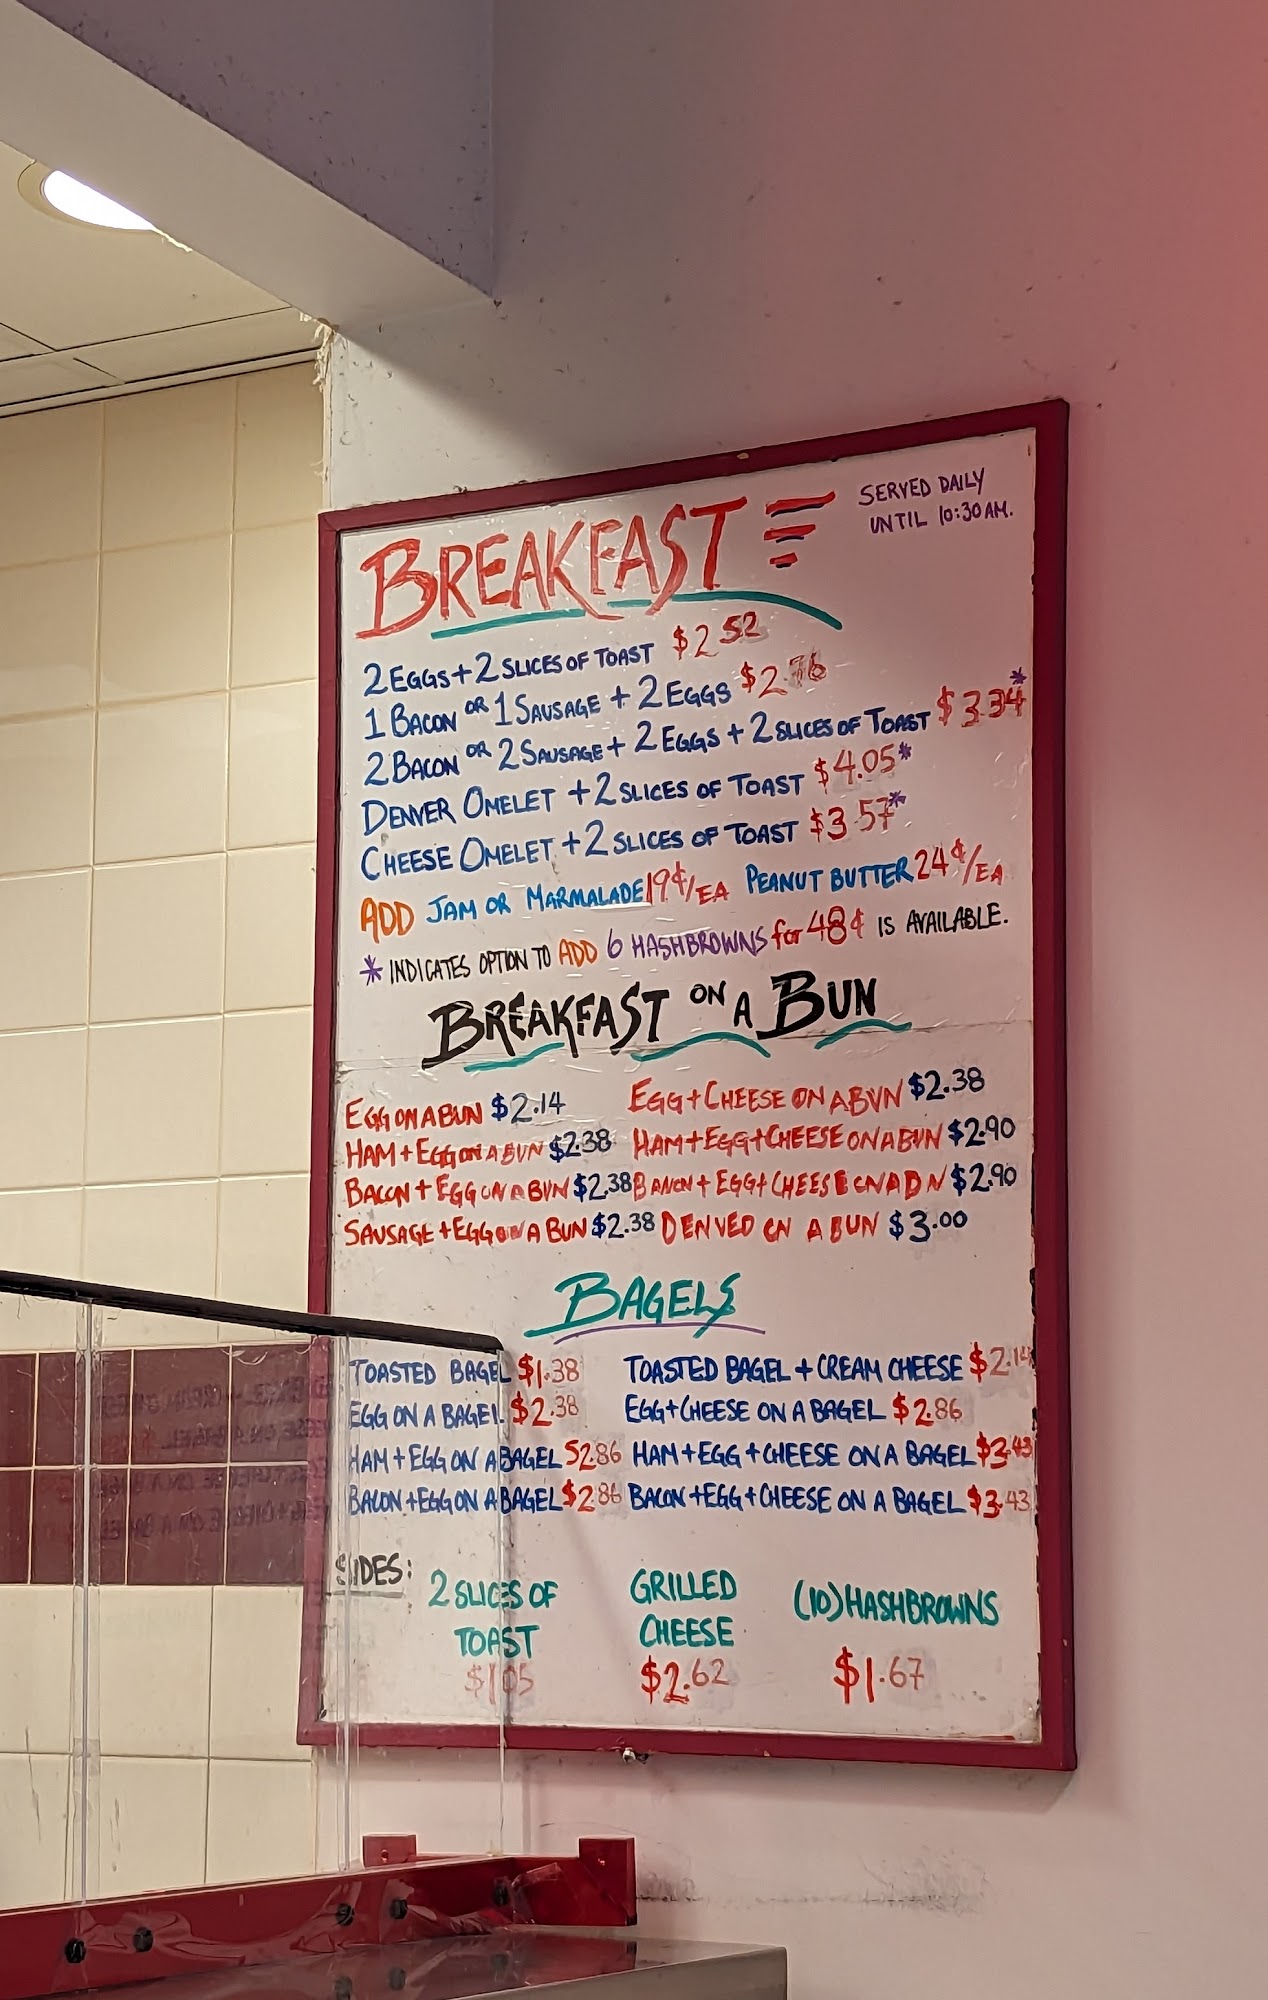 BREAKFAST
SERVED DAILY
UNTIL 10:30 AM.
2 EGGS + 2 SLICES OF TOAST $2.52
1 BACON OR 1 SAUSAGE + 2 EGGS $2.76
2 BACON OR 2 SAUSAGE + 2 EGGS + 2 SLICES OF TOAST $3.34*
DENVER OMELET + 2 SLICES OF TOAST $4.05*
CHEESE OMELET + 2 SLICES OF TOAST $3.57*
ADD JAM OR MARMALADE 19¢/EA PEANUT BUTTER 24¢/EA
* INDICATES OPTION TO ADD 6 HASHBROWNS for 48¢ IS AVAILABLE.
BREAKFAST ON A BUN
EGG ON A BUN $2.14 EGG + CHEESE ON A BUN $2.38
HAM + EGG ON A BUN $2.38 HAM + EGG + CHEESE ON A BUN $2.90
BACON + EGG ON A BUN $2.38 BACON + EGG + CHEESE ON A BUN $2.90
SAUSAGE + EGG ON A BUN $2.38 DENVED ON A BUN $3.00
BAGELS
TOASTED BAGEL $1.38 TOASTED BAGEL + CREAM CHEESE $2.14
EGG ON A BAGEL $2.38 EGG + CHEESE ON A BAGEL $2.86
HAM + EGG ON A BAGEL $2.86 HAM + EGG + CHEESE ON A BAGEL $3.43
BACON + EGG ON A BAGEL $2.86 BACON + EGG + CHEESE ON A BAGEL $3.43
SIDES:
2 SLICES OF
TOAST
$1.05
GRILLED
CHEESE
$2.62
(10) HASHBROWNS
$1.67